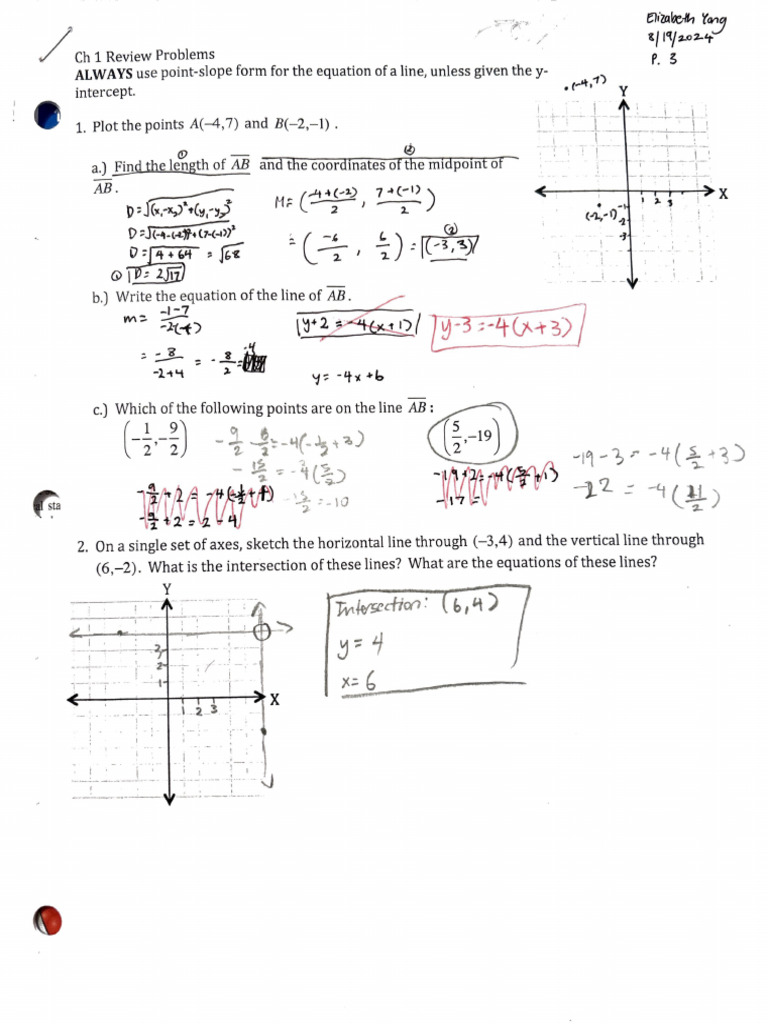 Elizabeth Yang
8/19/2024
P. 3
Ch 1 Review Problems
ALWAYS use point-slope form for the equation of a line, unless given the y-
intercept.
1. Plot the points A(−4,7) and B(−2,−1) .
.(-4,7)
Y
X
1 2 3
(-2,-1)
-1
-2
-3
① ②
a.) Find the length of AB and the coordinates of the midpoint of
AB .
D=√(x₁-x₂)²+(y₁-y₂)²
D=√(-4-(-2))²+(7-(-1))²
D=√4+64 = √68
① D= 2√17
M= (-4+(-2)/2 , 7+(-1)/2)
= (-6/2 , 6/2) = ② (-3,3)
b.) Write the equation of the line of AB .
m= -1-7/-2-(-4)
= -8/-2+4 = -8/2 = -4
y+2 = -4(x+1)
y-3=-4(x+3)
y= -4x+6
c.) Which of the following points are on the line AB :
(−1/2,−9/2)
-9/2 - 6/2 = -4(-1/2+3)
-15/2 = -4(5/2)
-15/2 = -10
-9/2 + 2 = -4(-1/2+1)
-9/2 + 2 = 2 - 4
(5/2,−19)
-19+2=-4(5/2+1)
-17=
-19-3 = -4(5/2+3)
-22 = -4(11/2)
al sta
2. On a single set of axes, sketch the horizontal line through (−3,4) and the vertical line through
(6,−2). What is the intersection of these lines? What are the equations of these lines?
Y
3
2
1
X
1 2 3
Intersection: (6,4)
y= 4
x= 6